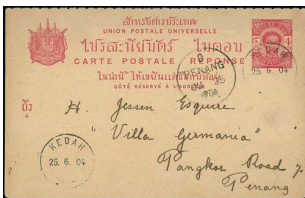 UNION POSTALE UNIVERSELLE
ไปรสะนียบัตร ใบตอบ
CARTE POSTALE RÉPONSE
CÔTÉ RÉSERVÉ À L'ADRESSE
4
KEDAH
25.6.04
PENANG
25
1904
H. Jessen Esquire
"Villa Germania"
Tangkor Road 7.
Penang
KEDAH
25.6.04